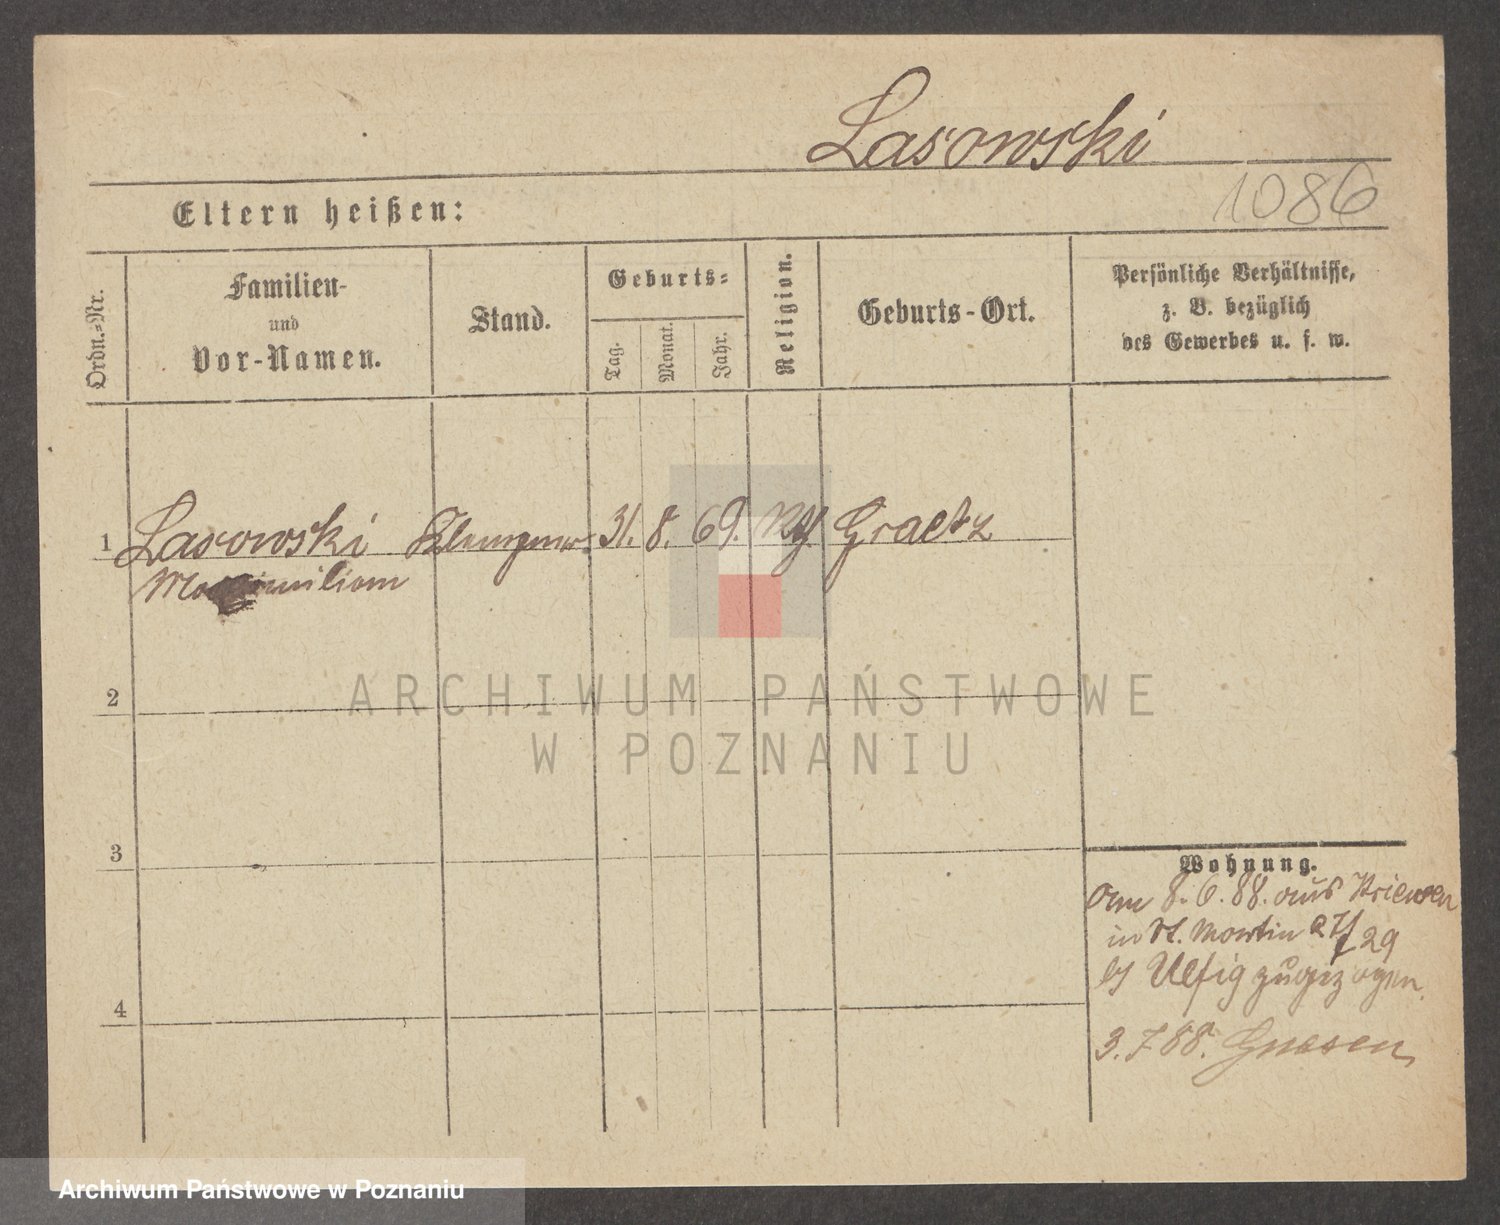 Lasowski
1086
Eltern heißen:
Ordn.-Nr.
Familien-
und
Vor-Namen.
Stand.
Geburts-
Tag.
Monat.
Jahr.
Religion.
Geburts-Ort.
Persönliche Verhältnisse,
z. B. bezüglich
des Gewerbes u. s. w.
1 Lasowski Klempner 31. 8. 69. Graetz
Maximilian
2
ARCHIWUM PAŃSTWOWE
W POZNANIU
3
4
Wohnung.
am 8. 6. 88. aus Kriewen
in St. Martin 27/29
zugezogen.
3. 7 88. Gnesen
Archiwum Państwowe w Poznaniu